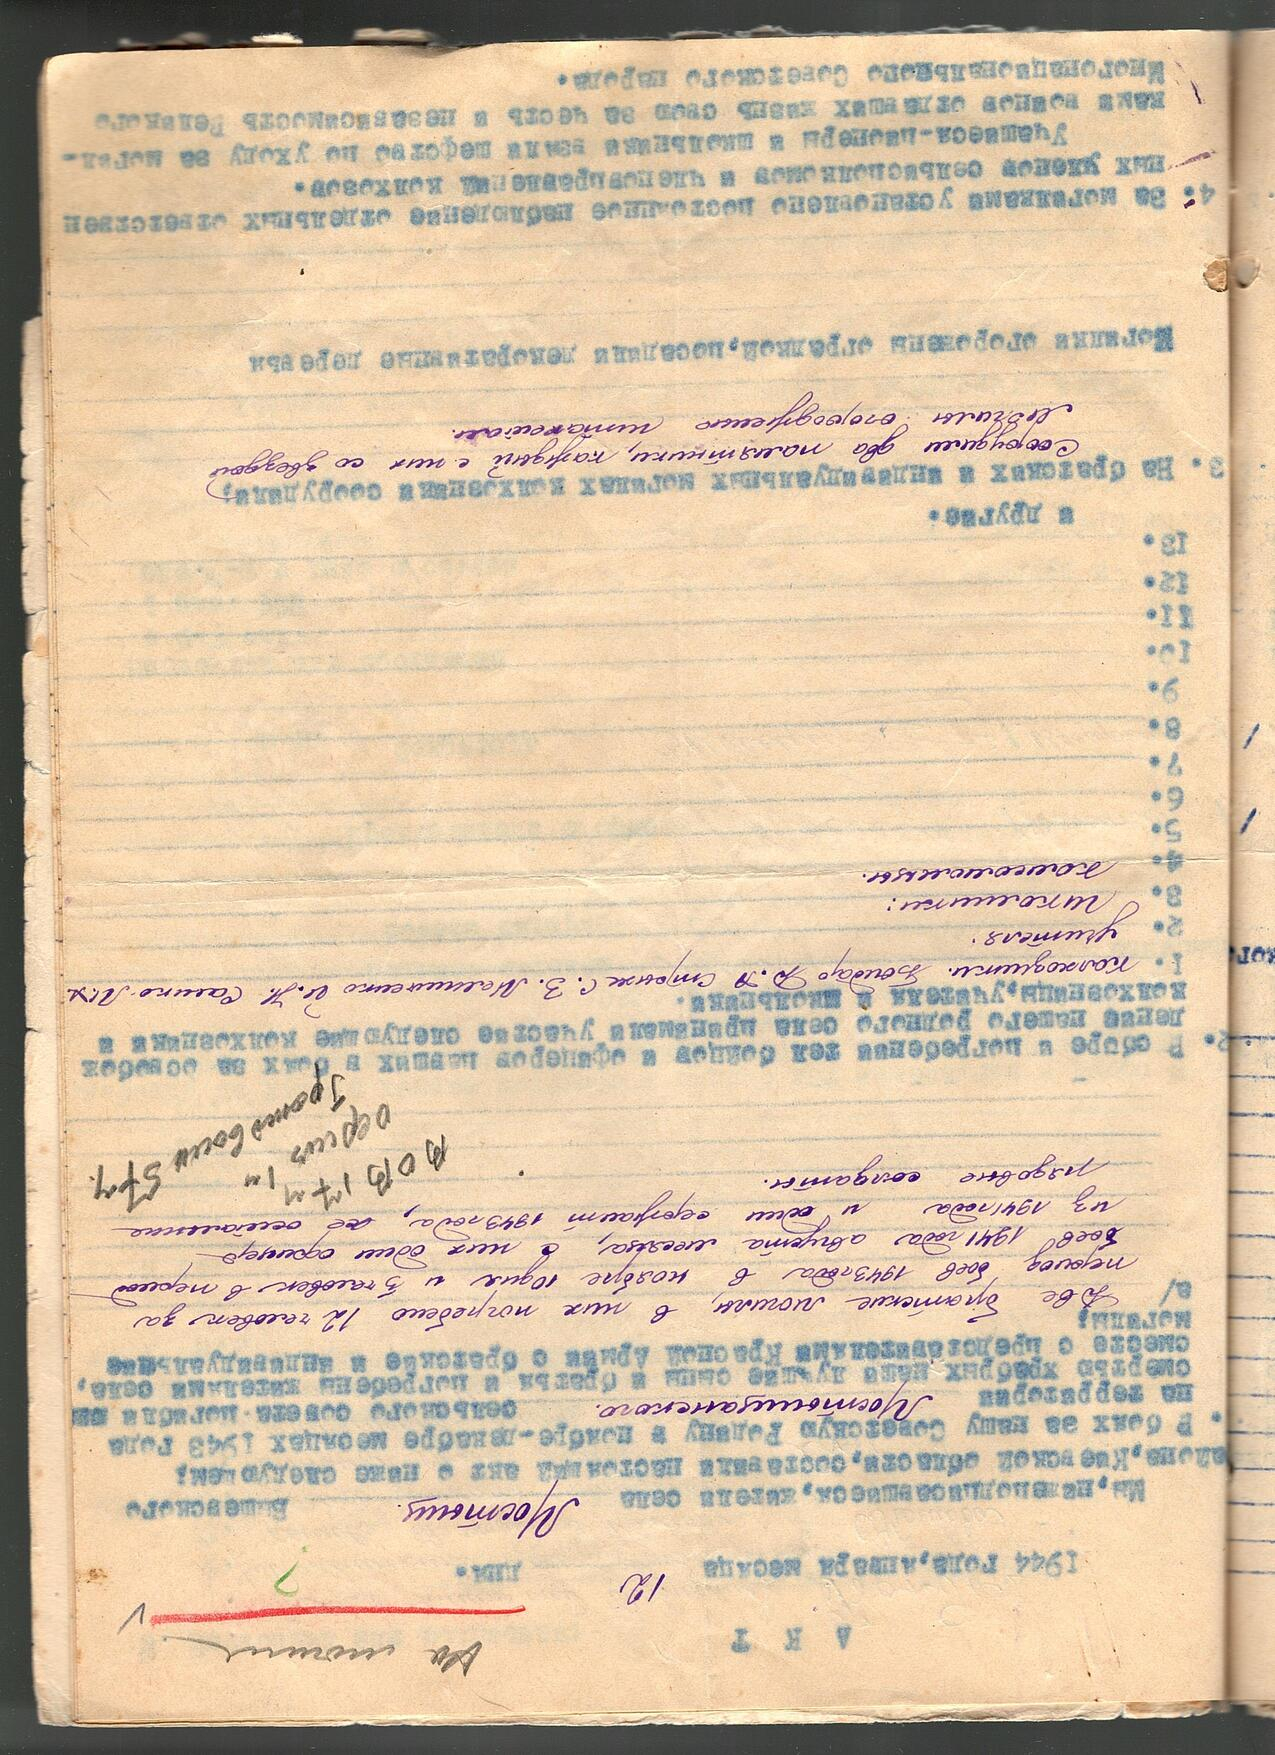 На могилы
А К Т
1944 года, января месяца 12 дня.
Мы, нижеподписавшиеся, жители села Мостищ. Вышевского
района, Киевской области, составили настоящий акт о ниже следующем:
В боях за нашу Советскую Родину в ноябре-декабре месяцах 1943 года
на территории Мостищанского. сельского совета погибли
смертью храбрых наши лучшие сыны и братья и погребены жителями села,
совместно с представителями Красной Армии в братские и индивидуальные
могилы;
а/ Две братские могилы, в них погребено 12 человек за
период боев 1943 года в ноябре 10 дня и 5 человек в период
боев 1941 года августа месяца, с них один офицер
из 1941 года и один сержант 1943 года, остальные
рядовые солдаты.
2. В сборе и погребении тел бойцов и офицеров павших в боях за освобож
дение нашего родного села принимали участие следующие колхозники и
колхозницы, учителя и школьники.
1. колхозники. Бондар Стриж С. З. И. Н.
2. учителя.
3. школьники:
4. комсомольцы.
5.
6.
7.
8.
9.
10.
11.
12.
13.
и другие.
3. На братских и индивидуальных могилах колхозники соорудили;
Соорудили два памятники, каждый с них со звездой
Могилы огорожено штахетом.
Могилки огорожены оградкой, посадили декоративные деревья
4. За могилками установлено постоянное наблюдение отдельных ответствен
ных членов сельисполкомов и членоправлений колхозов.
Учащиеся-пионеры и школьники взяли шефство по уходу за могил-
ками воинов отдавших жизнь свою за честь и независимость Великого
Многонационального Советского народа.